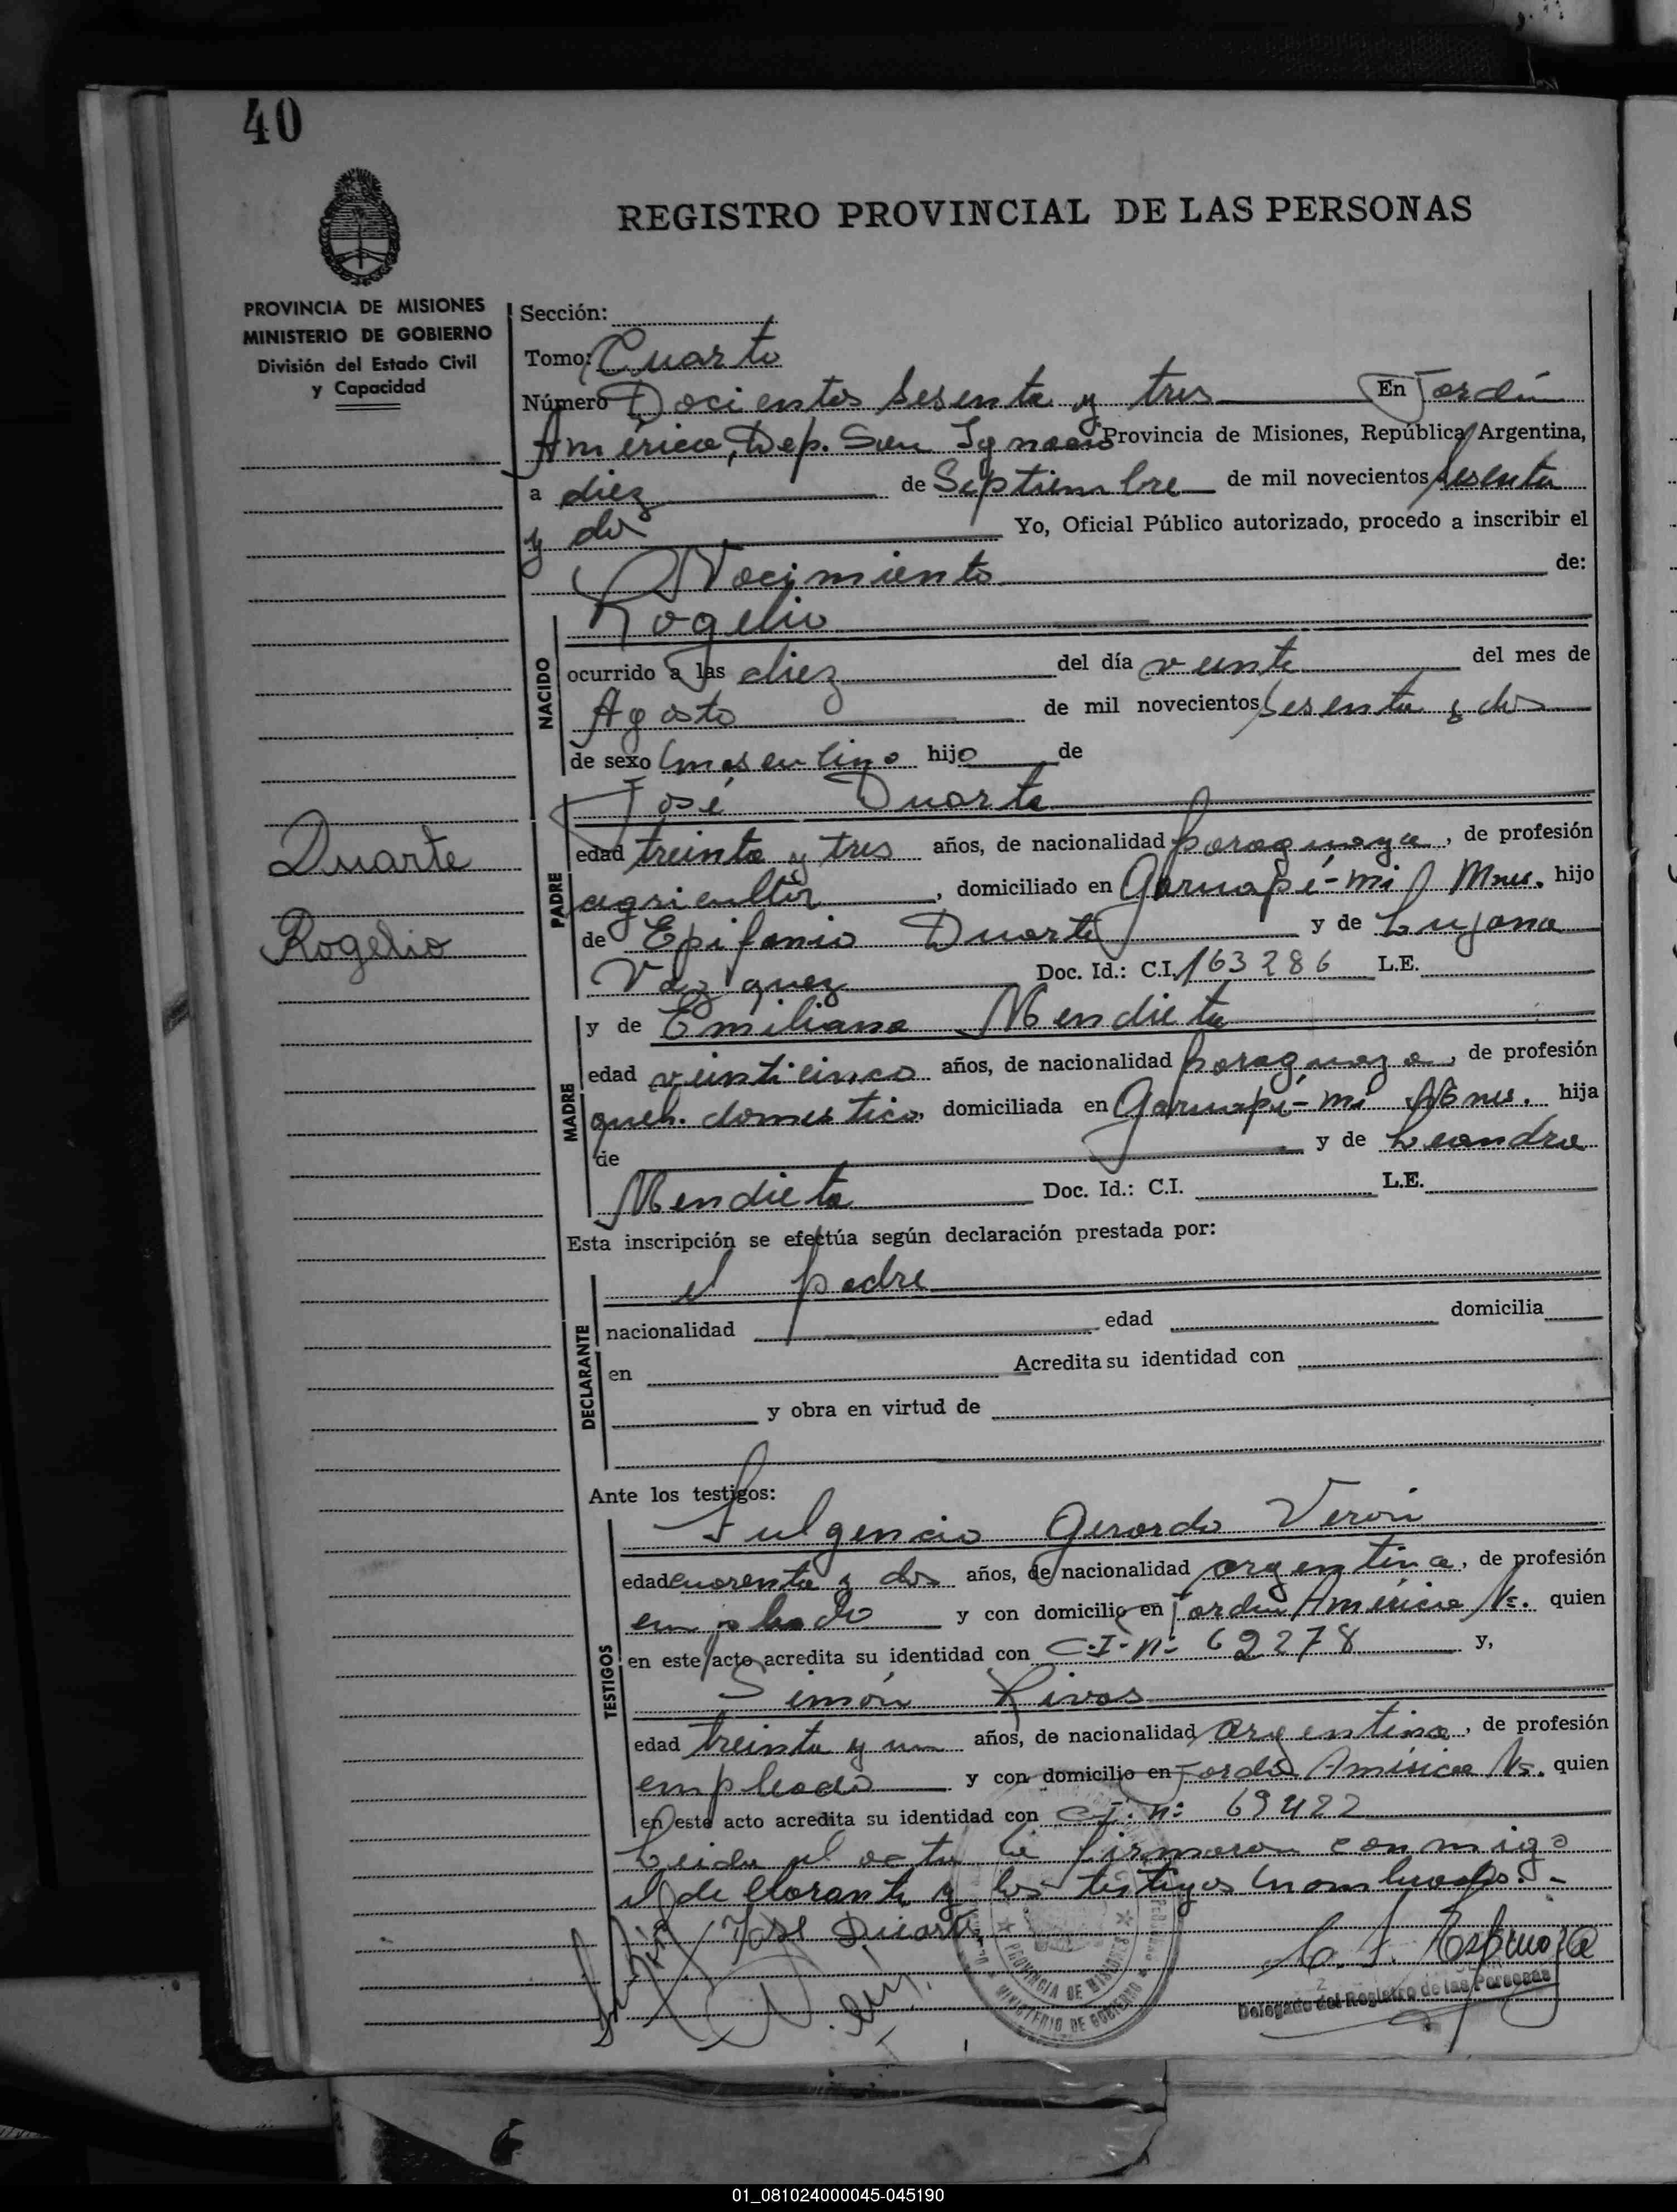 40
REGISTRO PROVINCIAL DE LAS PERSONAS
PROVINCIA DE MISIONES
MINISTERIO DE GOBIERNO
División del Estado Civil
y Capacidad
Sección:
Tomo: Cuarto
Número Docientos Sesenta y tres En Jardín
América, Dep. San Ignacio Provincia de Misiones, República Argentina,
a diez de Septiembre de mil novecientos Sesenta
y dos Yo, Oficial Público autorizado, procedo a inscribir el
Nacimiento de:
NACIDO
Rogelio
ocurrido a las diez del día veinte del mes de
Agosto de mil novecientos Sesenta y dos
de sexo masculino hijo de
PADRE
José Duarte
Duarte
Rogelio
edad treinta y tres años, de nacionalidad paraguaya, de profesión
agricultor, domiciliado en Garuapé-mi Mnes. hijo
de Epifanio Duarte y de Lujana
Vazquez Doc. Id.: C.I. 163286 L.E.
MADRE
y de Emiliana Mendieta
edad veinticinco años, de nacionalidad paraguaya, de profesión
queh. domestico, domiciliada en Garuapé-mi Mnes. hija
de y de Leandra
Mendieta Doc. Id.: C.I. L.E.
Esta inscripción se efectúa según declaración prestada por:
DECLARANTE
el padre
nacionalidad edad domicilia
en Acredita su identidad con
y obra en virtud de
Ante los testigos:
TESTIGOS
Fulgencio Gerardo Verón
edad cuarenta y dos años, de nacionalidad argentina, de profesión
empleado y con domicilio en Jardín América Ms. quien
en este acto acredita su identidad con C.I. Nº 62278 y,
Simón Rivas
edad treinta y un años, de nacionalidad argentina, de profesión
empleado y con domicilio en Jardín América Ms. quien
en este acto acredita su identidad con C.I. Nº 69422
Leida el acta la firmaron conmigo
el declarante y los testigos nombrados.-
José Duarte
PROVINCIA DE MISIONES
MINISTERIO DE GOBIERNO
C. J. Espinoza
Delegado del Registro de las Personas
01_081024000045-045190